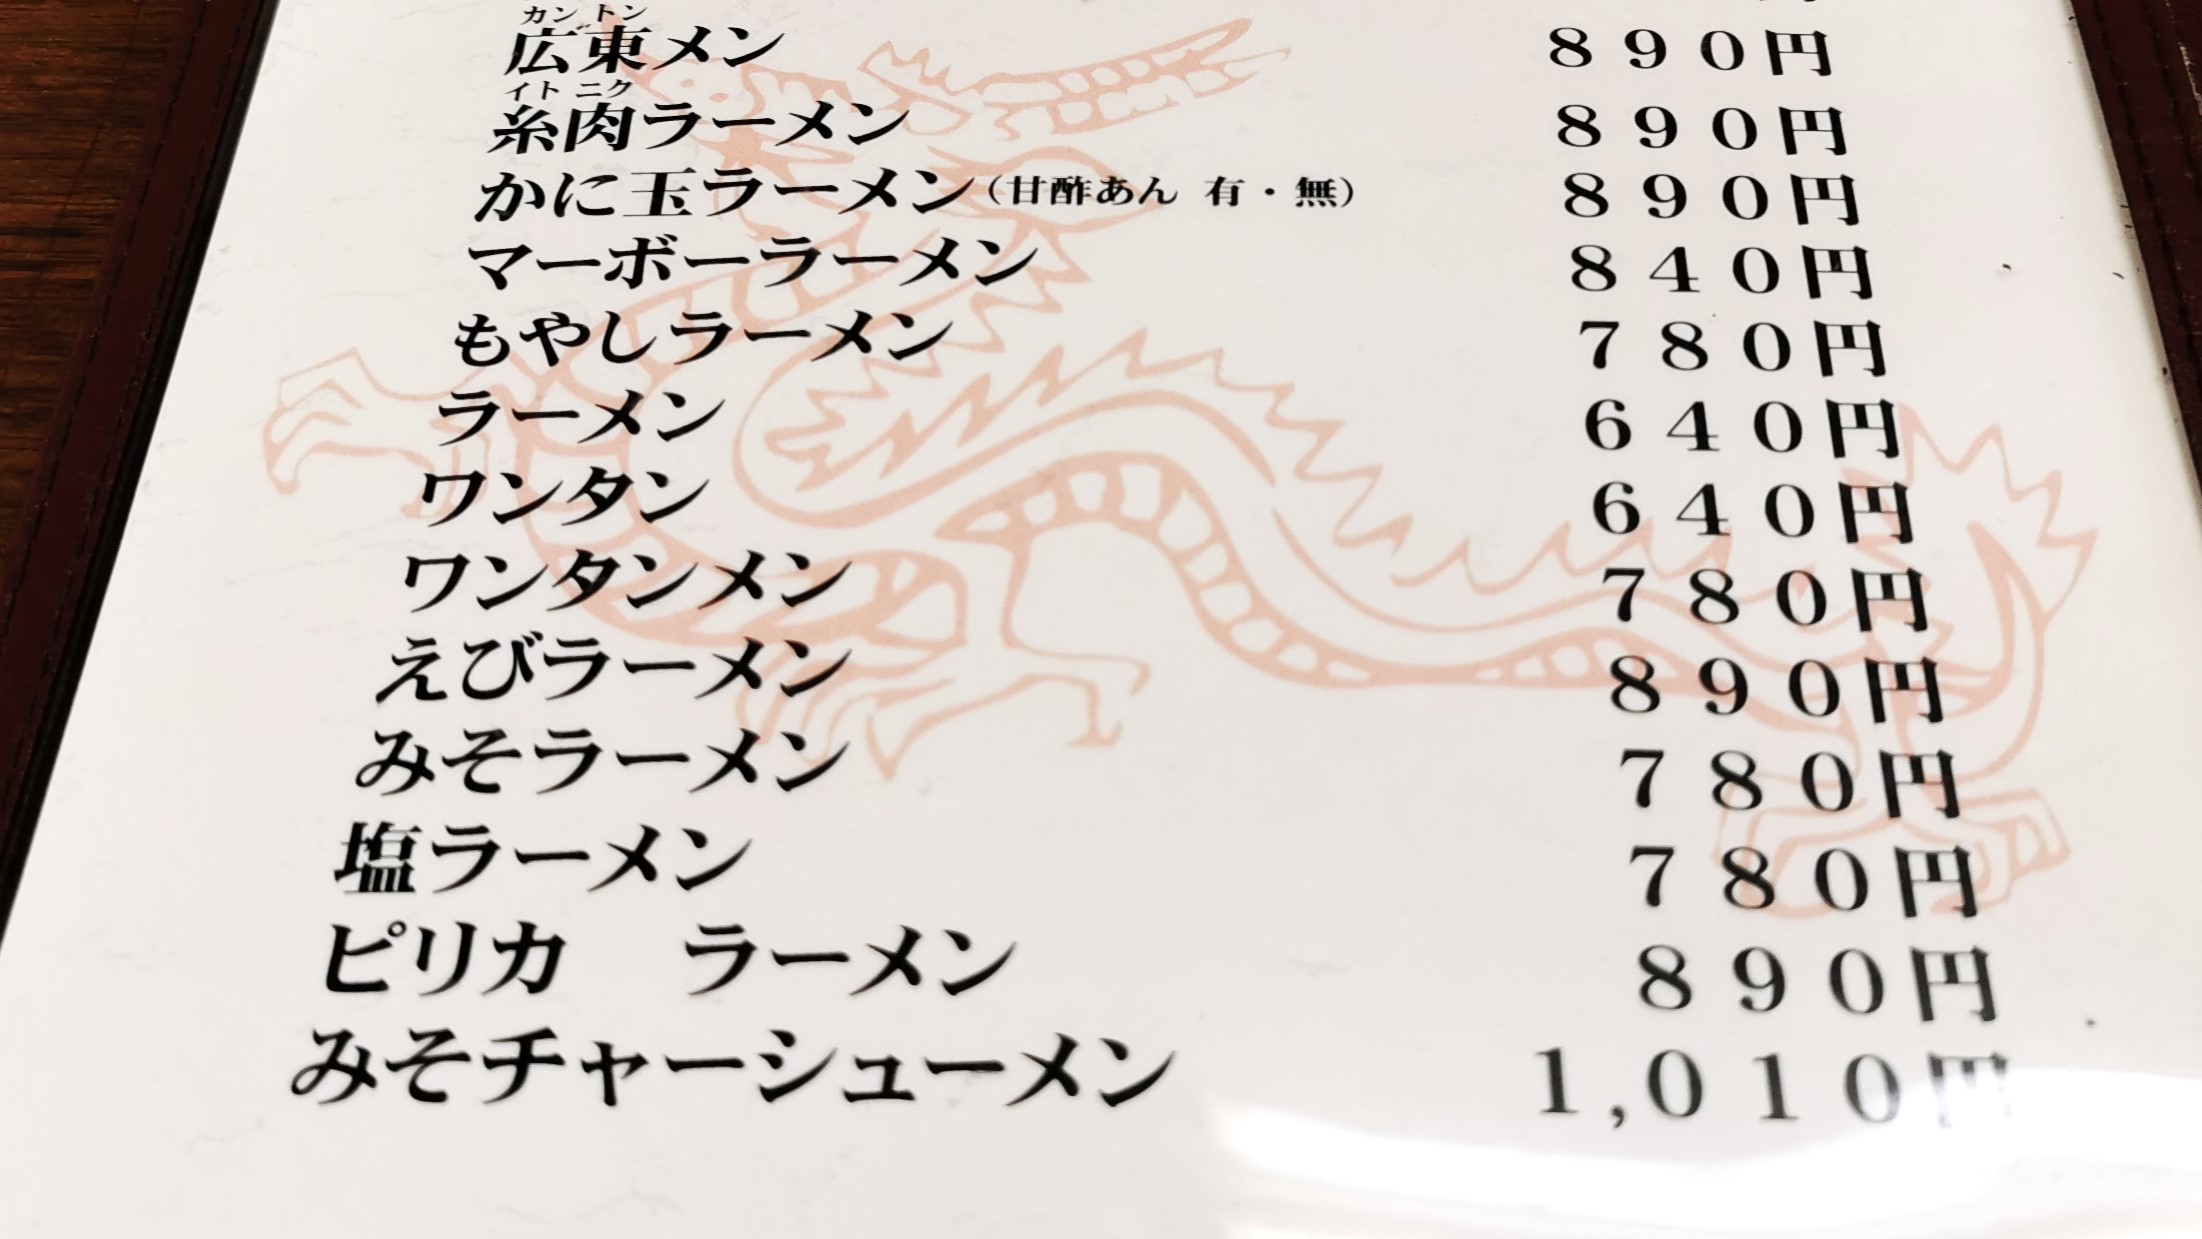 カントン
広東メン 890円
イトニク
糸肉ラーメン 890円
かに玉ラーメン(甘酢あん 有・無) 890円
マーボーラーメン 840円
もやしラーメン 780円
ラーメン 640円
ワンタン 640円
ワンタンメン 780円
えびラーメン 890円
みそラーメン 780円
塩ラーメン 780円
ピリカ ラーメン 890円
みそチャーシューメン 1,010円